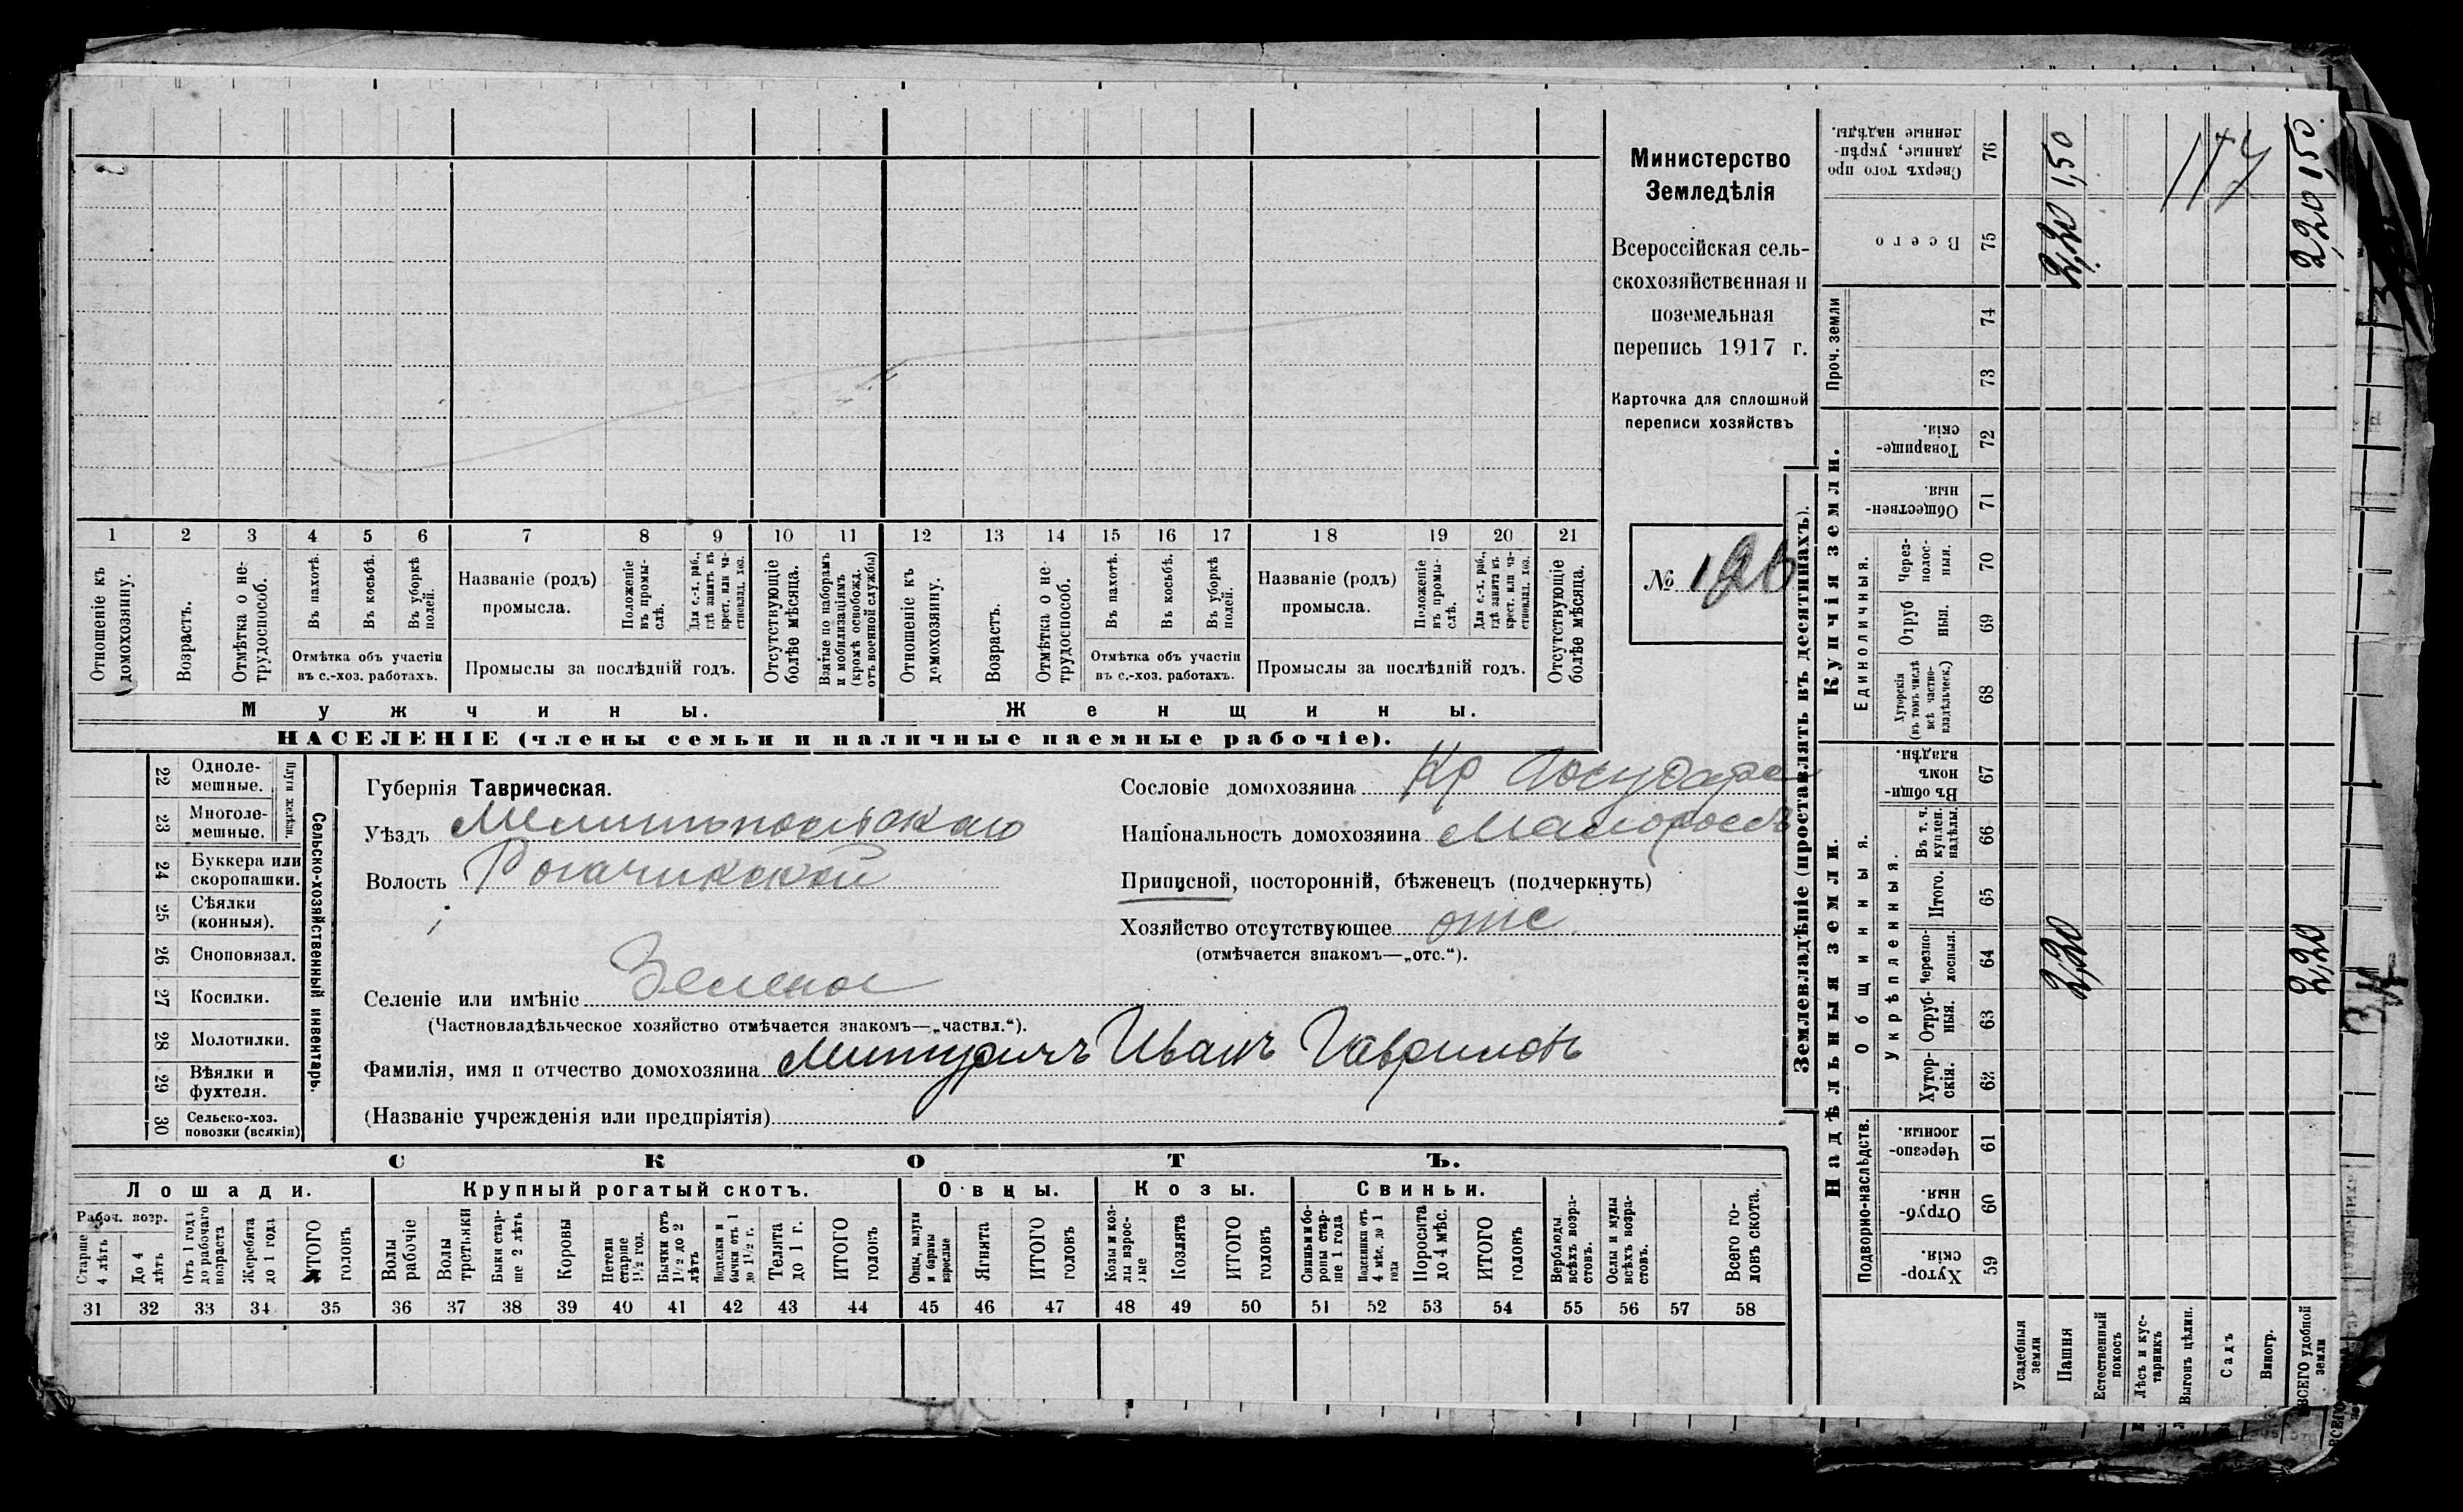 Министерство
Земледѣлія
Всероссійская сель-
скохозяйственная и
поземельная
перепись 1917 г.
Карточка для сплошной
переписи хозяйствъ
№
1 2 3 4 5 6 7 8 9 10 11 12 13 14 15 16 17 18 19 20 21
Отношеніе къ домохозяину.
Возрастъ.
Отмѣтка о не-трудоспособ.
Въ пахотѣ.
Въ косьбѣ.
Въ уборкѣ полей.
Отмѣтка объ участіи
въ с.-хоз. работахъ.
Названіе (родъ)
промысла.
Положеніе въ промы-слѣ.
Для с.-х. раб., гдѣ занятъ въ крест. или ча-стновлад. хоз.
Промыслы за послѣдній годъ.
Отсутствующіе болѣе мѣсяца.
Взятые по наборамъ и мобилизаціямъ (кромѣ освобожд. отъ военной службы)
Отношеніе къ домохозяину.
Возрастъ.
Отмѣтка о не-трудоспособ.
Въ пахотѣ.
Въ косьбѣ.
Въ уборкѣ полей.
Отмѣтка объ участіи
въ с.-хоз. работахъ.
Названіе (родъ)
промысла.
Положеніе въ промы-слѣ.
Для с.-х. раб., гдѣ занята въ крест. или ча-стновлад. хоз.
Промыслы за послѣдній годъ.
Отсутствующіе болѣе мѣсяца.
Мужчины. Женщины.
НАСЕЛЕНІЕ (члены семьи и наличные наемные рабочіе).
Сельско-хозяйственный инвентарь.
Плуги желѣзн.
22 Одноле-мешные.
23 Многоле-мешные.
24 Буккера или скоропашки.
25 Сѣялки (конныя).
26 Сноповязал.
27 Косилки.
28 Молотилки.
29 Вѣялки и фухтеля.
30 Сельско-хоз. повозки (всякія)
Губернія Таврическая.
Уѣздъ Мелитопольскаго
Волость Рогачикской
Селеніе или имѣніе Зеленое
(Частновладѣльческое хозяйство отмѣчается знакомъ—„частвл.“).
Фамилія, имя и отчество домохозяина Митуричъ Иванъ Гавриловъ
(Названіе учрежденія или предпріятія)
Сословіе домохозяина Кр
Національность домохозяина Малороссъ
Приписной, посторонній, бѣженецъ (подчеркнуть)
Хозяйство отсутствующее отс
(отмѣчается знакомъ—„отс.“).
СКОТЪ.
Лошади. Крупный рогатый скотъ. Овцы. Козы. Свиньи.
Рабоч. возр.
Старше 4 лѣтъ
До 4 лѣтъ
Отъ 1 года до рабочаго возраста
Жеребята до 1 года
ИТОГО головъ
Волы рабочіе
Волы третьяки
Быки стар-ше 2 лѣтъ
Коровы
Нетели старше 1½ год.
Бычки отъ 1½ до 2 лѣтъ
Водѣлки и бычки отъ 1 до 1½ г.
Телята до 1 г.
ИТОГО головъ
Овцы, валухи и бараны взрослые
Ягнята
ИТОГО головъ
Козы и коз-лы взрос-лые
Козлята
ИТОГО головъ
Свиньи и бо-ровы стар-ше 1 года
Подсвинки отъ 4 мѣс. до 1 года
Поросята до 4 мѣс.
ИТОГО головъ
Верблюды всѣхъ возра-стовъ.
Ослы и мулы всѣхъ возра-стовъ.
Всего го-ловъ скота.
31 32 33 34 35 36 37 38 39 40 41 42 43 44 45 46 47 48 49 50 51 52 53 54 55 56 57 58
Землевладѣніе (проставлять въ десятинахъ).
Надѣльныя земли. Купчія земли. Проч. земли
Подворно-наслѣдств. Общинныя. Единоличныя.
Укрѣпленныя.
Хутор-скія. 59
Отруб-ныя. 60
Черезпо-лосныя. 61
Хутор-скія. 62
Отруб-ныя. 63
Черезпо-лосныя. 64
Итого. 65
Въ т. ч. куплен. надѣлы. 66
Въ общи-номъ владѣн. 67
Хуторскія (въ томъ числѣ всѣ частно-владѣльческ.) 68
Отруб ныя. 69
Через-полос-ныя. 70
Обществен-ныя. 71
Товарище-скія. 72
73
74
Всего 75
Сверхъ того про данные, укрѣп-ленные надѣлы. 76
Усадебныя земли
Пашня 2,20 2,20 1,50
Естественный покосъ
Лѣсъ и кус-тарникъ
Выгонъ цѣлин.
Садъ
Виногр.
ВСЕГО удобной земли 2,20 2,20 1,50.